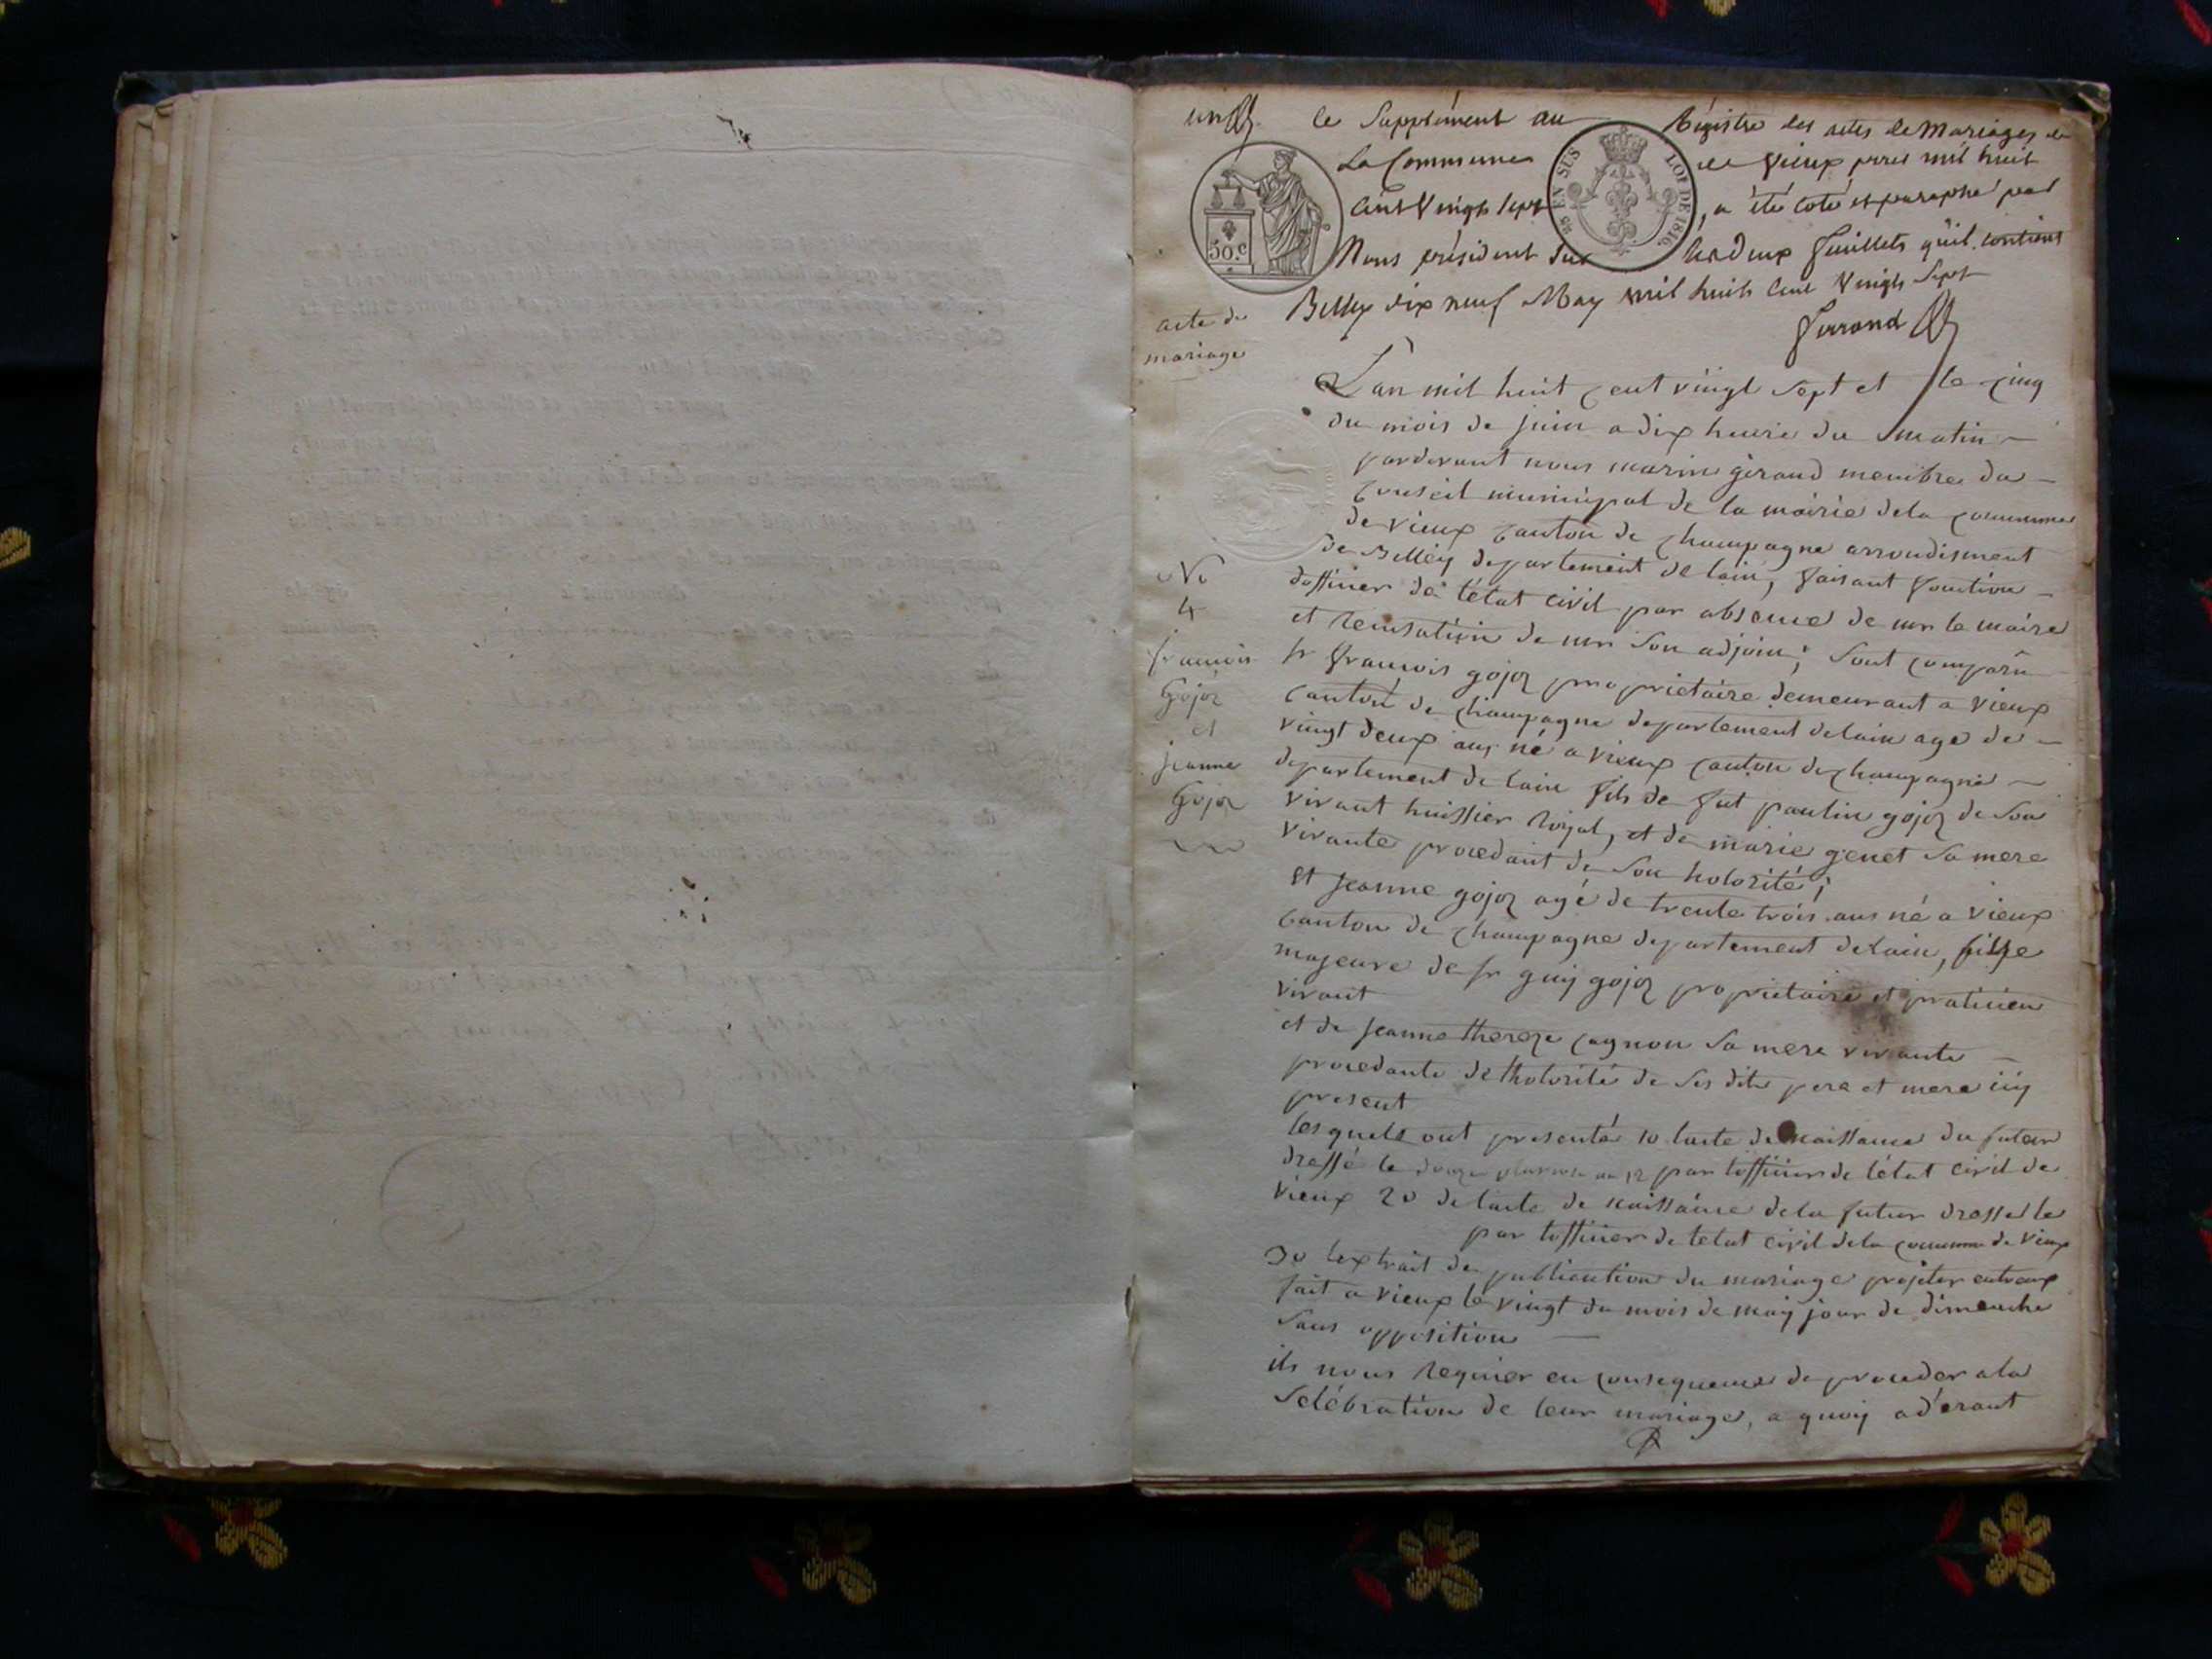 un
le Supplément au Régistre des actes de Mariages de
La Commune de Vieux pour mil huit
Cent Vingt sept, a été coté et paraphé par
Nous président sur les Deux feuillets qu'il contient
Belley dix neuf May mil huit Cent Vingt Sept
Ferrand
50.c
25 EN SUS
LOI DE 1816.
acte de
mariage
L'an mil huit cent vingt sept et le cinq
du mois de juin a dix heure du matin
pardevant nous marin géraud membre du
Conseil municipal de la mairie de la commune
de vieux canton de champagne arrondisment
de Belley departement de lain, faisant fonction
dofficier de létat civil par absence de mr le maire
et recusation de mr son adjoin; Sont comparu
sr francois gojoz propriétaire demeurant a vieux
canton de champagne departement delain age de
vingt deux ans né a vieux canton de champagne
departement de lain fils de fut paulin gojoz de son
vivant huissier royal, et de marie genet sa mere
vivante procedant de son hotorité;
et jeanne gojoz agé de trente trois ans né a vieux
canton de champagne departement delain, fille
majeure de sr guy gojoz propriétaire et praticien
vivant
et de jeanne thereze cagnon sa mere vivante
procedante de lhotorité de ses dits pere et mere iciy
present
lesquels ont presenté 1o lacte de naissance du futur
dressé le douze pluviose an 12 par lofficier de létat civil de
vieux 2o de lacte de naissance dela futur dressé le
par lofficier de létat civil dela commune de vieux
3o lextrait de publication du mariage projeter entreux
fait a vieux le vingt du mois de may jour de dimenche
sans opposition
ils nous requier en consequence de proceder a la
Selébration de leur mariage, a quoy adérant
No
4
francois
Gojoz
et
jeanne
Gojoz